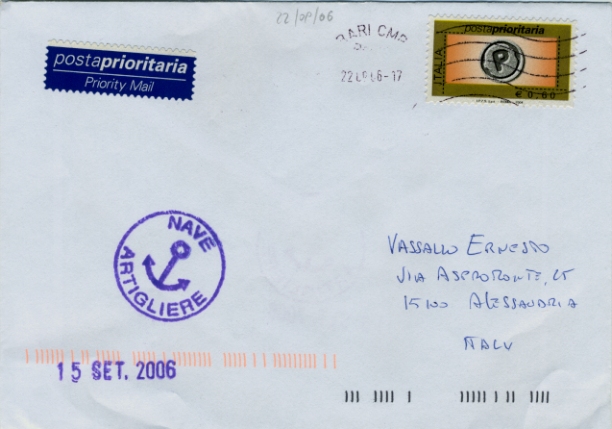 22/09/06
BARI CMP
22 09 06-17
postaprioritaria
Priority Mail
postaprioritaria
ITALIA
P
€ 0,60
NAVE
ARTIGLIERE
VASSALLO ERNESTO
VIA ASPROMONTE, 25
15100 ALESSANDRIA
ITALY
15 SET. 2006